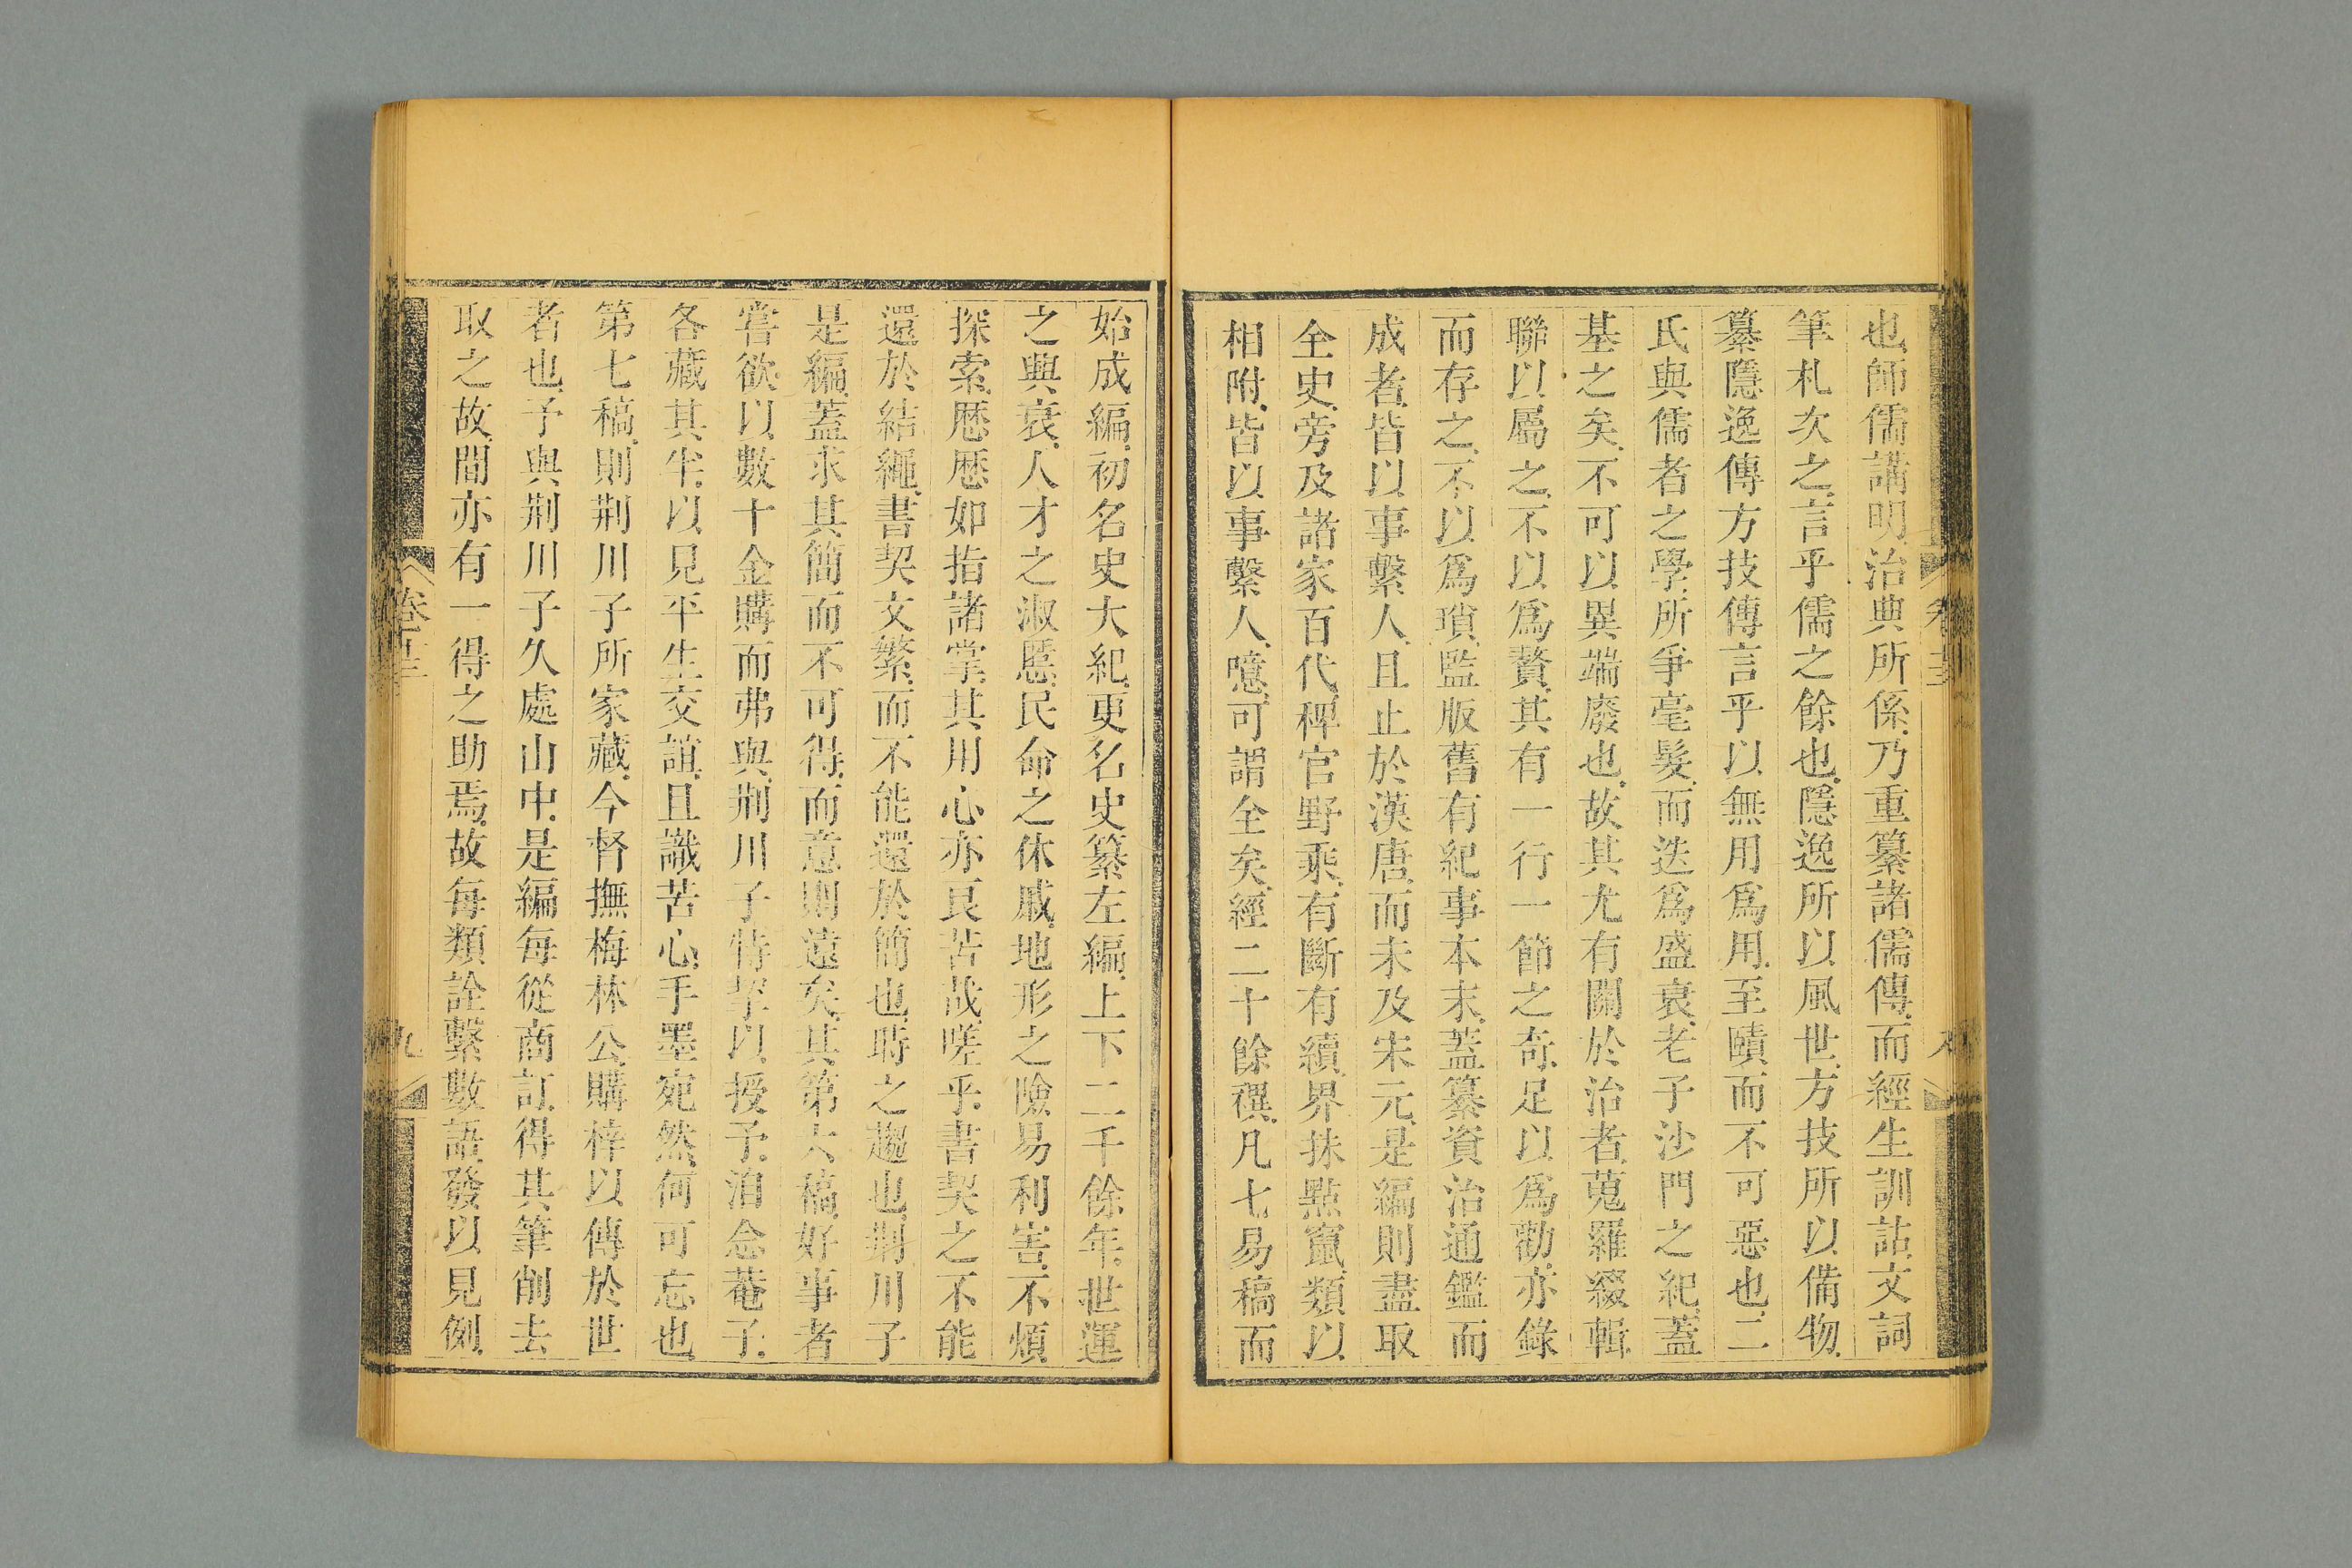 也師儒講明治典所係乃重纂諸儒傳而經生訓詁文詞
筆札次之言乎儒之餘也隱逸所以風世方技所以備物
纂隱逸傳方技傳言乎以無用爲用至賾而不可惡也二
氏與儒者之學所爭毫髮而迭爲盛衰老子沙門之紀蓋
基之矣不可以異端廢也故其尤有關於治者蒐羅綴輯
聯以屬之不以爲贅其有一行一節之奇足以爲勸亦錄
而存之不以爲瑣監版舊有紀事本末蓋纂資治通鑑而
成者皆以事繫人且止於漢唐而未及宋元是編則盡取
全史旁及諸家百代稗官野乘有斷有續界抹點竄類以
相附皆以事繫人噫可謂全矣經二十餘禩凡七易稿而
始成編初名史大紀更名史纂左編上下二千餘年世運
之興衰人才之淑慝民命之休戚地形之險易利害不煩
探索歷歷如指諸掌其用心亦良苦哉嗟乎書契之不能
還於結繩書契文繁而不能還於簡也時之趨也荆川子
是編蓋求其簡而不可得而意則遠矣其第六稿好事者
嘗欲以數十金購而弗與荆川子特挈以授予洎念菴子
各藏其半以見平生交誼且識苦心手墨宛然何可忘也
第七稿則荆川子所家藏今督撫梅林公購梓以傳於世
者也予與荆川子久處山中是編每從商訂得其筆削去
取之故間亦有一得之助焉故每類詮繫數語發以見例
卷十三
九